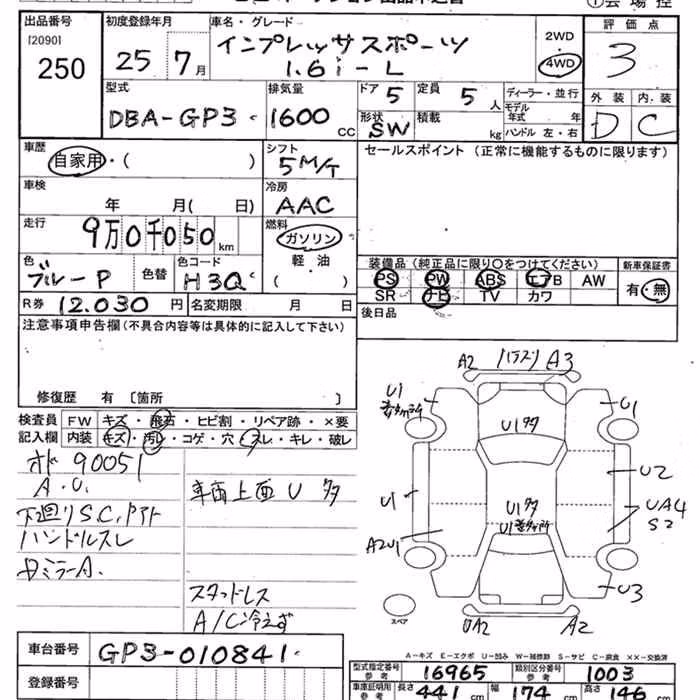 出品番号 初度登録年月 車名・グレード 2WD 評価点
[2090] 250 25 7月 インプレッサスポーツ 4WD 3
1.6i-L
外装 内装
D C
型式 排気量 ドア 5 定員 5人 ディーラー・並行
DBA-GP3 1600cc 形状 SW 積載 kg モデル年式 年
ハンドル 左・右
車歴 シフト セールスポイント (正常に機能するものに限ります)
自家用・( ) 5M/T
車検 冷房
年 月( 日) AAC
走行 燃料
9万0千050km ガソリン
軽・油
( )
色 色替 色コード
ブルーP H3Q
装備品(純正品に限り○をつけてください) 新車保証書
PS PW ABS エアB AW 有・無
SR ナビ TV カワ
R券 12.030円 名変期限 月 日 後日品
注意事項申告欄(不具合内容等は具体的に記入して下さい)
修復歴 有〔箇所 〕
検査員 FW キズ・飛石・ヒビ割・リペア跡・×要
記入欄 内装 キズ・汚レ・コゲ・穴・スレ・キレ・破レ
オド 90051
A.U.
車両上面 U 多
下廻りSC.
ハンドルスレ
ミラーA.
スタッドレス
A/C冷えず
A2 A3
U1
U1多
U1
U1
U2
U1多
UA4
S2
A2U1
U3
スペア
UA2 A2
車台番号 GP3-010841
登録番号
A-キズ E-エクボ U-凹み W-補修跡 S-サビ C-腐食 ××-交換済
型式指定番号 参考 16965 類別区分番号 参考 1003
車庫証明用 参考 長さ 441cm 幅 174cm 高さ 146cm